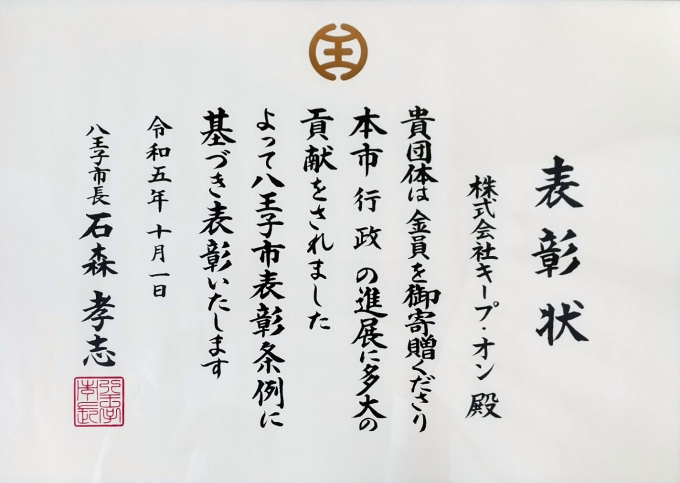 表彰状
株式会社キープ・オン 殿
貴団体は金員を御寄贈くださり
本市行政の進展に多大の
貢献をされました
よって八王子市表彰条例に
基づき表彰いたします
令和五年十月一日
八王子市長 石森孝志